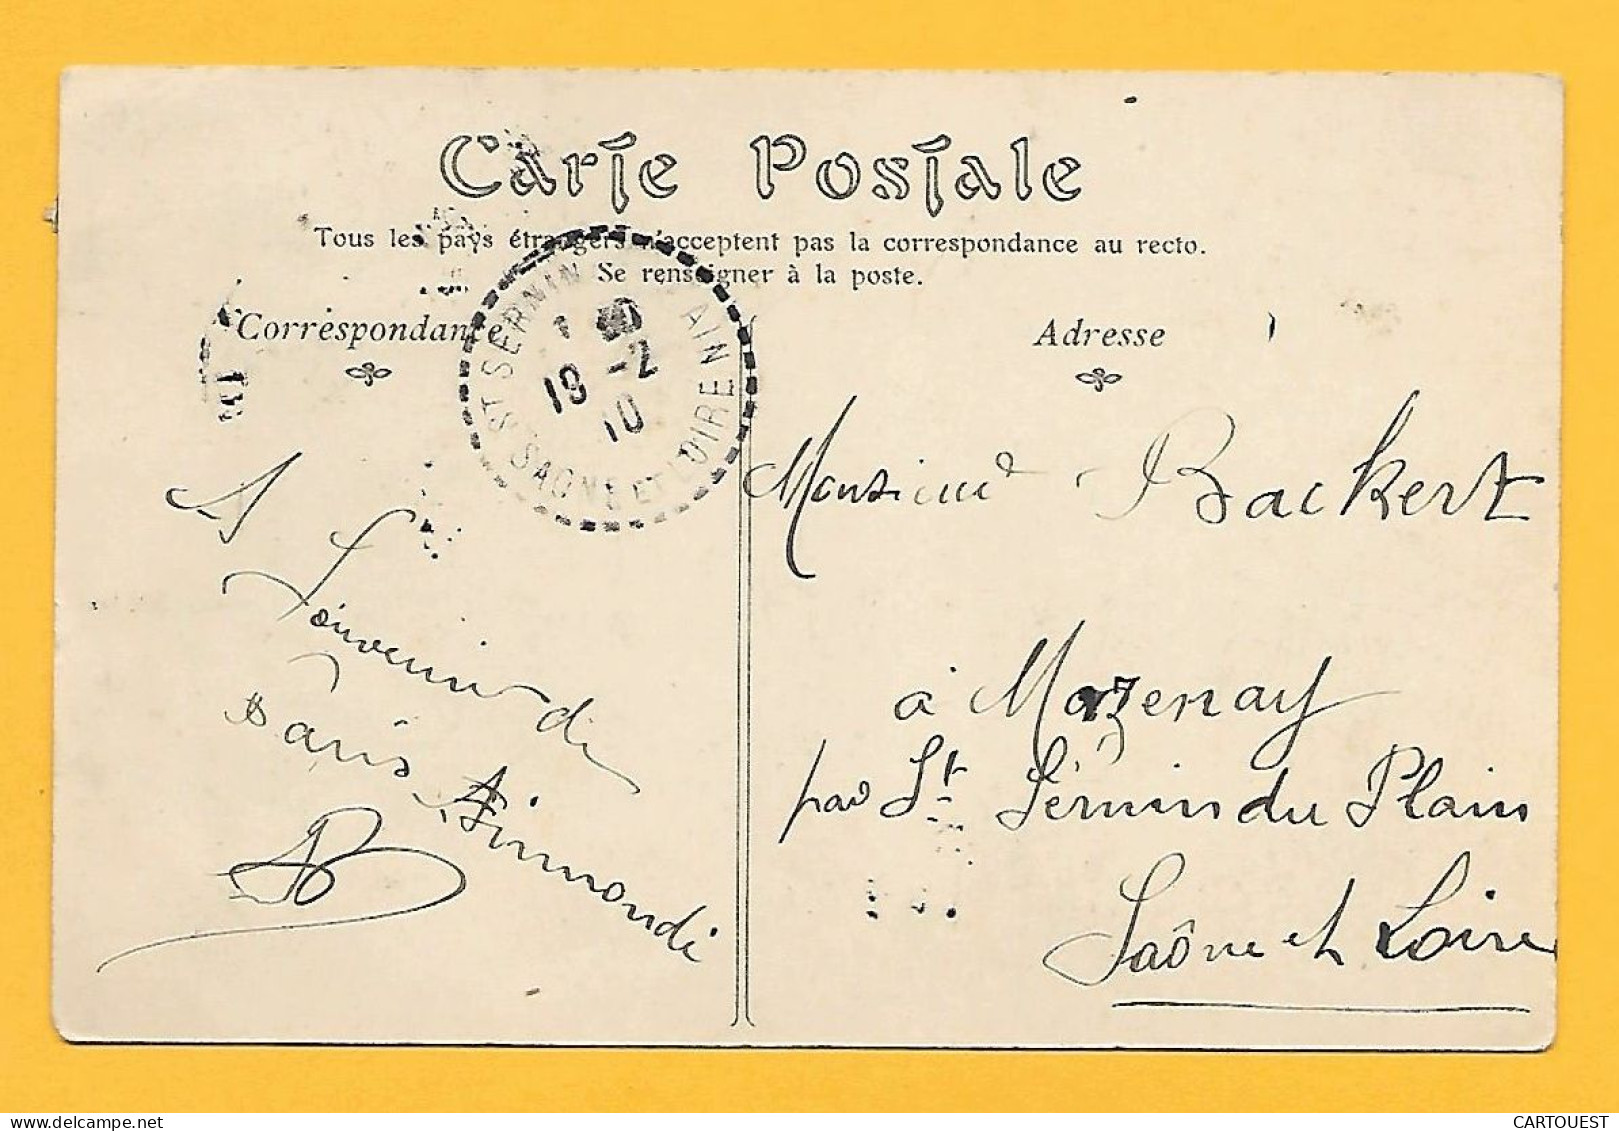 Carte Postale
Tous les pays étrangers n'acceptent pas la correspondance au recto.
Se renseigner à la poste.
Correspondance
Adresse
ST SERNIN AIN
SAONE ET LOIRE
19 -2
10
Souvenir di
Paris
Monsieur Backert
à Mazenay
par St. Sernin du Plain
Saône et Loire
CARTOUEST